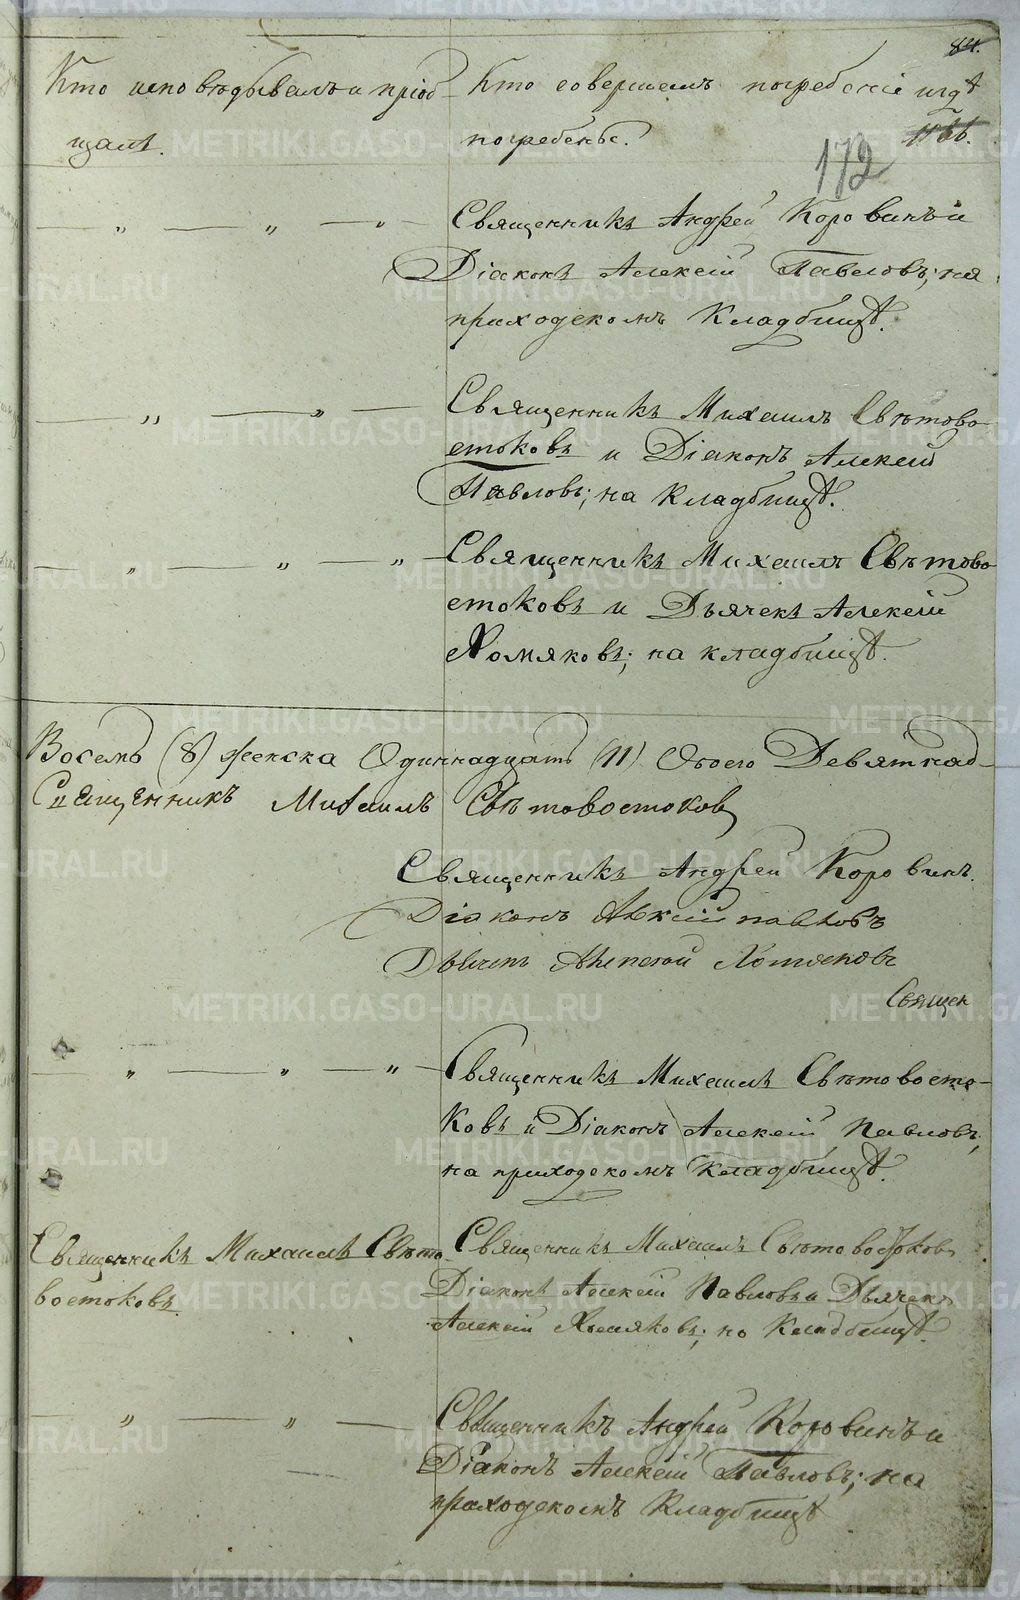 84.
Кто исповѣдывалъ и пріоб-
щалъ.
Кто совершалъ погребеніе и гдѣ
погребены.
172
Священникъ Андрей Коровинъ и
Діаконъ Алексій Павловъ; на
приходскомъ Кладбищѣ.
Священникъ Михаилъ Свѣтово-
стоковъ и Діаконъ Алексій
Павловъ; на Кладбищѣ.
Священникъ Михаилъ Свѣтово-
стоковъ и Дьячекъ Алексій
Хомяковъ; на кладбищѣ.
Восемь (8) женска Одиннадцать (11) Обоего Девятнад-
Священникъ Михаилъ Свѣтовостоковъ
Священникъ Андрей Коровинъ.
Діаконъ Алексій Павловъ
Дьячекъ Алексей Хомяковъ
Священ
Священникъ Михаилъ Свѣтовосто-
ковъ и Діаконъ Алексій Павловъ;
на приходскомъ Кладбищѣ.
Священникъ Михаилъ Свѣто
востоковъ.
Священникъ Михаилъ Свѣтовостоковъ
Діаконъ Алексій Павловъ и Дьячекъ
Алексій Хомяковъ; на Кладбищѣ.
Священникъ Андрей Коровинъ и
Діаконъ Алексій Павловъ; на
приходскомъ Кладбищѣ
METRIKI.GASO-URAL.RU